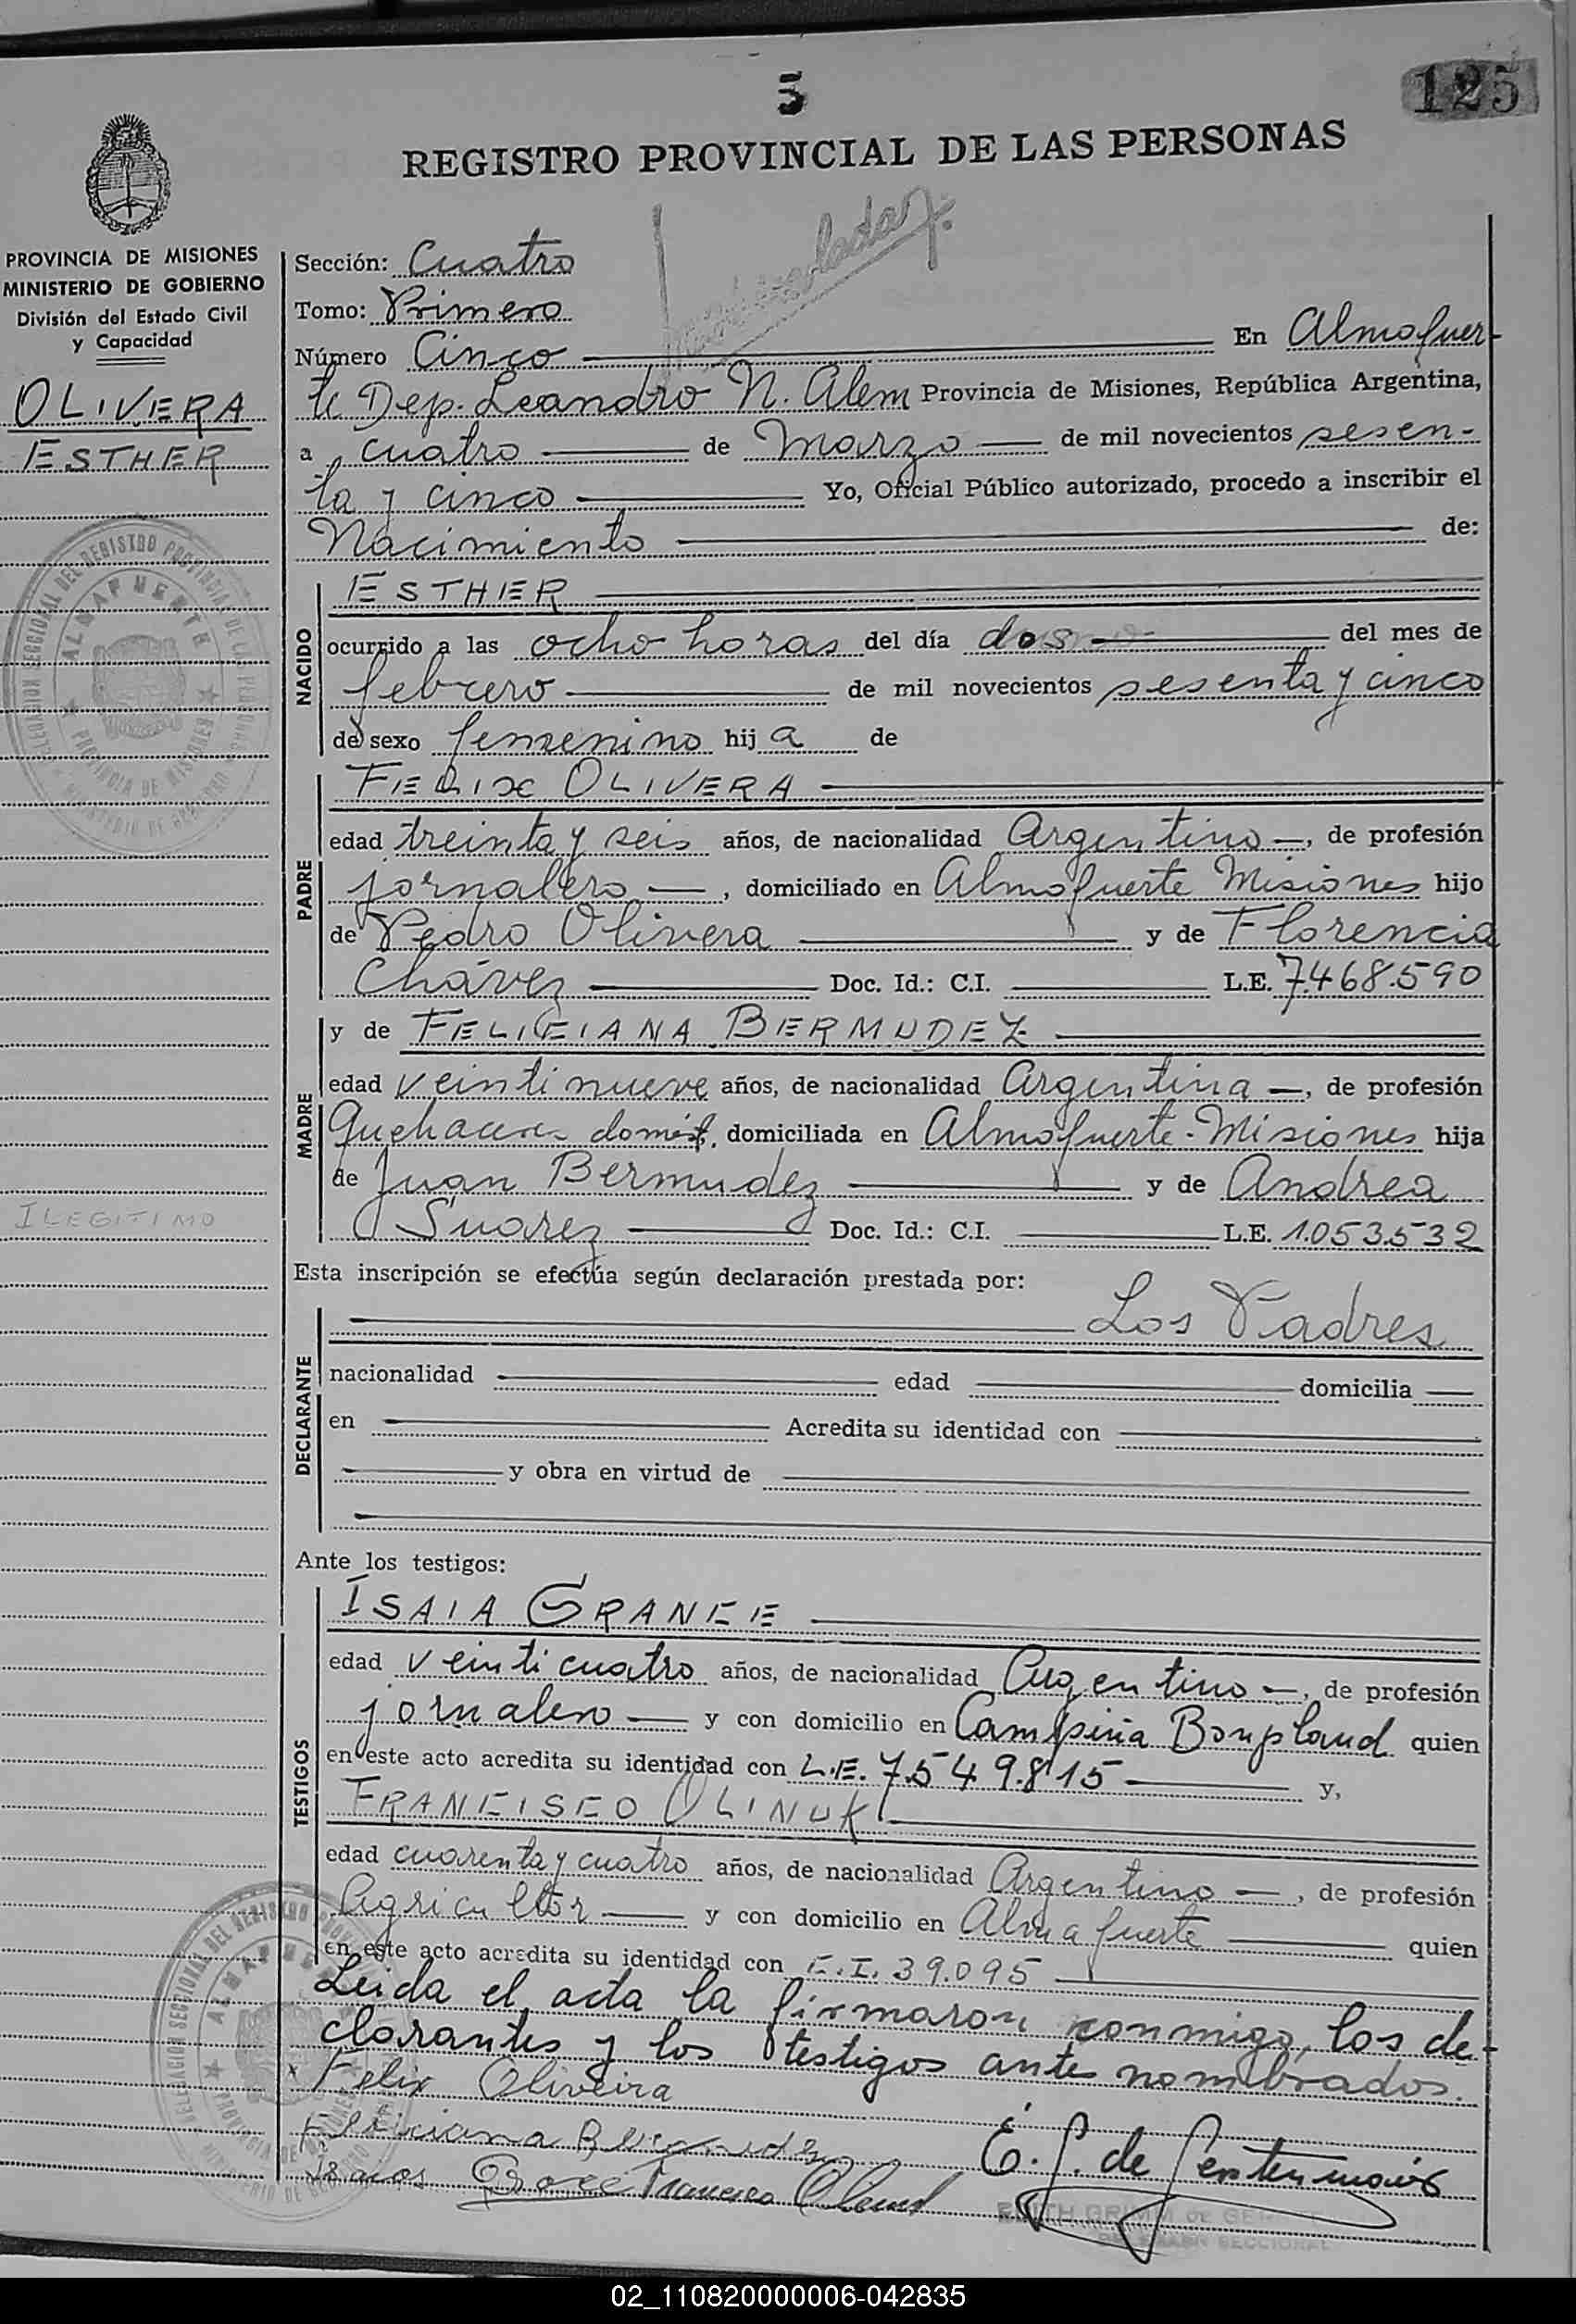 5
125
REGISTRO PROVINCIAL DE LAS PERSONAS
PROVINCIA DE MISIONES
MINISTERIO DE GOBIERNO
División del Estado Civil
y Capacidad
OLIVERA
ESTHER
ILEGITIMO
Sección: Cuatro
Tomo: Primero
Número Cinco En Almafuer-
te Dep. Leandro N. Alem Provincia de Misiones, República Argentina,
a cuatro de Marzo de mil novecientos sesen-
ta y cinco Yo, Oficial Público autorizado, procedo a inscribir el
Nacimiento de:
NACIDO
ESTHER
ocurrido a las ocho horas del día dos del mes de
febrero de mil novecientos sesenta y cinco
de sexo femenino hij a de
PADRE
FELIX OLIVERA
edad treinta y seis años, de nacionalidad Argentino, de profesión
jornalero, domiciliado en Almafuerte Misiones hijo
de Pedro Olivera y de Florencia
Chávez Doc. Id.: C.I. L.E. 7.468.590
MADRE
y de FELICIANA BERMUDEZ
edad veintinueve años, de nacionalidad Argentina, de profesión
Quehacer domést, domiciliada en Almafuerte - Misiones hija
de Juan Bermudez y de Andrea
Suarez Doc. Id.: C.I. L.E. 1.053.532
Esta inscripción se efectúa según declaración prestada por:
DECLARANTE
Los Padres
nacionalidad edad domicilia
en Acredita su identidad con
y obra en virtud de
Ante los testigos:
TESTIGOS
ISAIA GRANCE
edad veinticuatro años, de nacionalidad Argentino, de profesión
jornalero y con domicilio en Campiña Bonpland quien
en este acto acredita su identidad con L.E. 7.549.815 y,
FRANCISCO OLINUK
edad cuarenta y cuatro años, de nacionalidad Argentino, de profesión
Agricultor y con domicilio en Almafuerte quien
en este acto acredita su identidad con C.I. 39.095
Leida el acta la firmaron conmigo, los de-
clarantes y los testigos ante nombrados.
Felix Oliveira
Feliciana Bermudez
Francisco
E. G. de
EDITH GRIMM DE
SECCIONAL
DELEGACION SECCIONAL DEL REGISTRO PROVINCIAL DE LAS PERSONAS
ALMAFUERTE
PROVINCIA DE MISIONES
MINISTERIO DE GOBIERNO
02_110820000006-042835